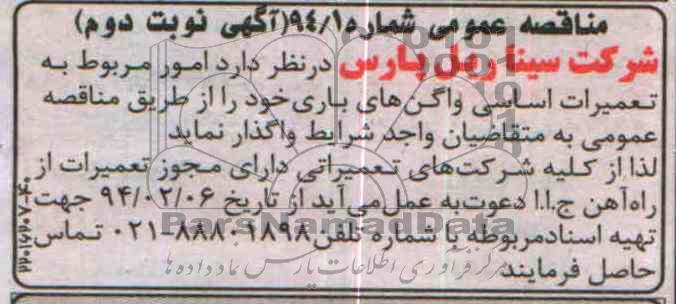 مناقصه عمومی شماره ۹۴/۱(آگهی نوبت دوم)
شرکت سینا ریل پارس درنظر دارد امور مربوط به
تعمیرات اساسی واگن‌های باری خود را از طریق مناقصه
عمومی به متقاضیان واجد شرایط واگذار نماید
لذا از کلیه شرکت‌های تعمیراتی دارای مجوز تعمیرات از
راه‌آهن ج.ا.ا دعوت به عمل می‌آید از تاریخ ۹۴/۰۲/۰۶ جهت
تهیه اسناد مربوطه با شماره تلفن ۸۸۸۰۹۸۹۸-۰۲۱ تماس
حاصل فرمایند
ParsNamadData
مرکز فرآوری اطلاعات پارس نماد داده ها